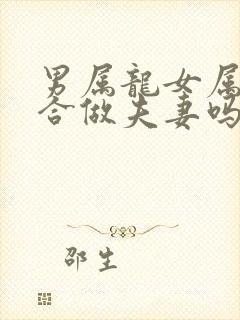 男属龍女属
合做夫妻吗
邵生